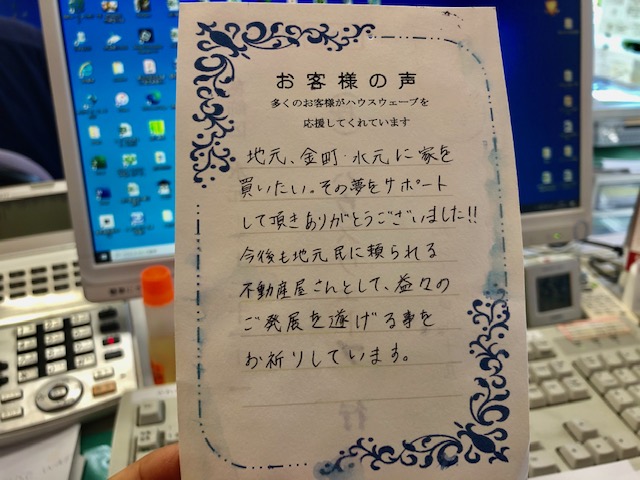 お客様の声
多くのお客様がハウスウェーブを
応援してくれています
地元、金町・水元に家を
買いたい。その夢をサポート
して頂きありがとうございました!!
今後も地元民に頼られる
不動産屋さんとして、益々の
ご発展を遂げる事を
お祈りしています。